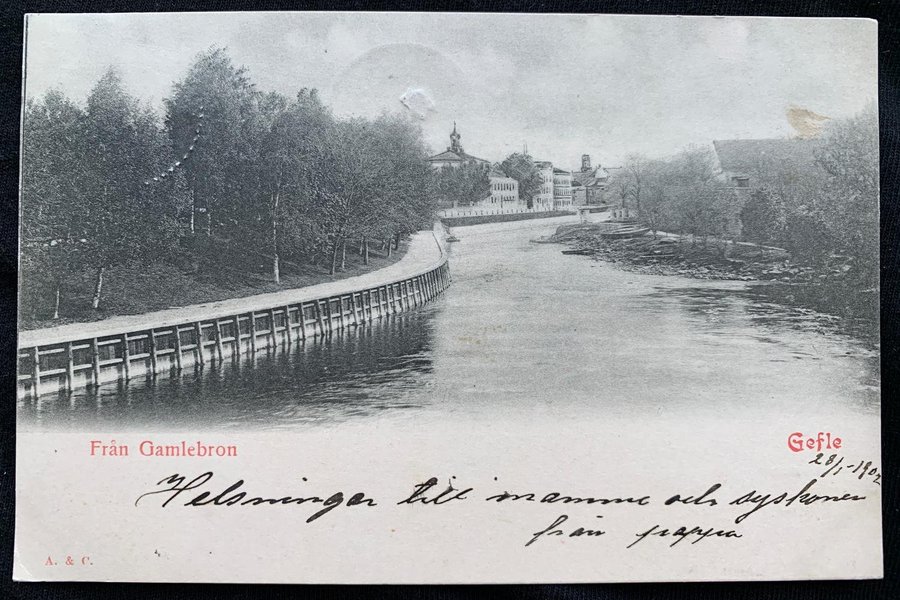 Från Gamlebron
Gefle
28/1-1902
Helsningar till mamma och syskonen
från pappa
A. & C.